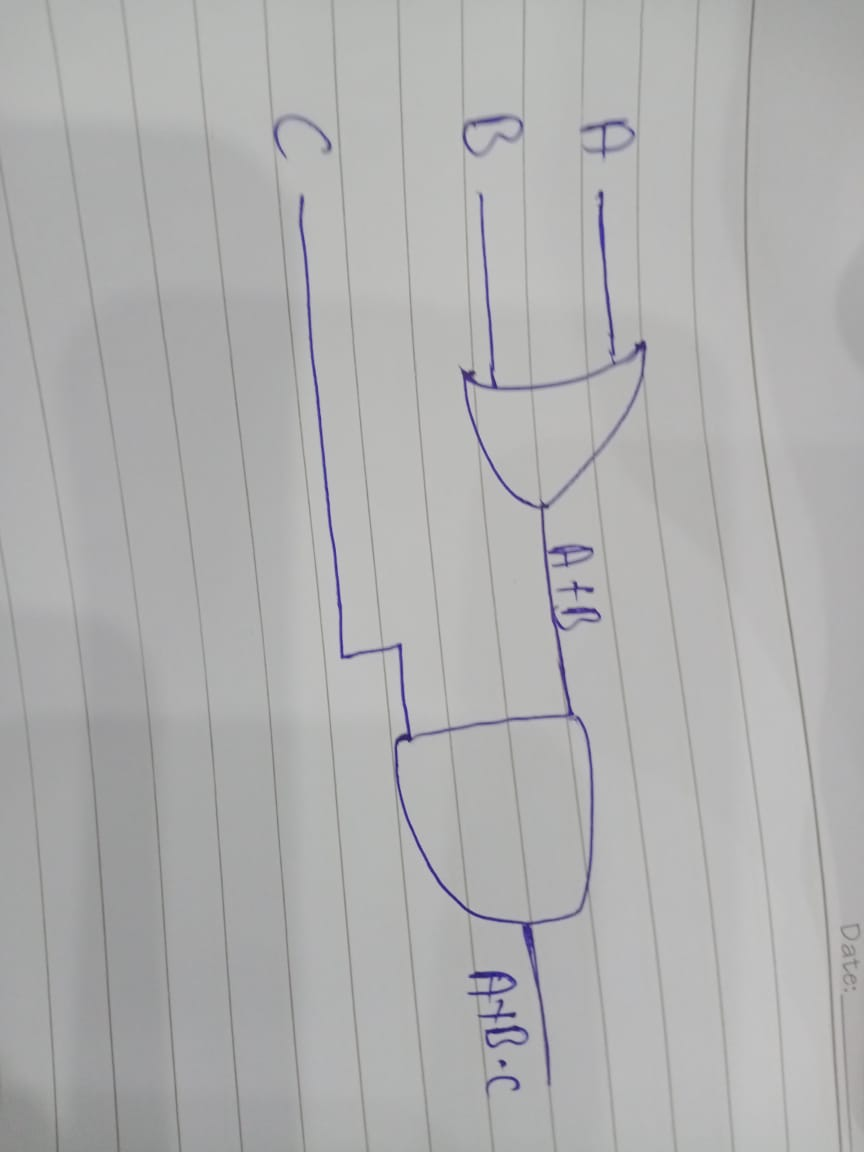 Date:
A
B
A+B
C
A+B.C